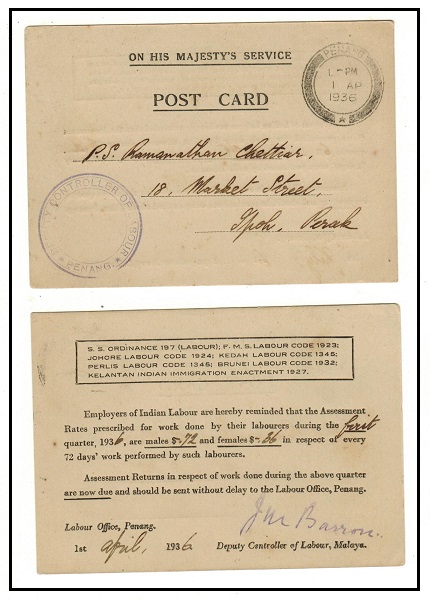 ON HIS MAJESTY'S SERVICE
POST CARD
PENANG
PM
1 AP
1936
P.S. Ramanathan Chettiar,
18, Market Street,
Ipoh, Perak
CONTROLLER OF LABOUR
* PENANG. *
S. S. ORDINANCE 197 (LABOUR); F. M. S. LABOUR CODE 1923;
JOHORE LABOUR CODE 1924; KEDAH LABOUR CODE 1345;
PERLIS LABOUR CODE 1345; BRUNEI LABOUR CODE 1932;
KELANTAN INDIAN IMMIGRATION ENACTMENT 1927.
Employers of Indian Labour are hereby reminded that the Assessment
Rates prescribed for work done by their labourers during the first
quarter, 1936, are males $-.72 and females $-.36 in respect of every
72 days' work performed by such labourers.
Assessment Returns in respect of work done during the above quarter
are now due and should be sent without delay to the Labour Office, Penang.
Labour Office, Penang.
J M Barron.
1st April, 1936
Deputy Controller of Labour, Malaya.